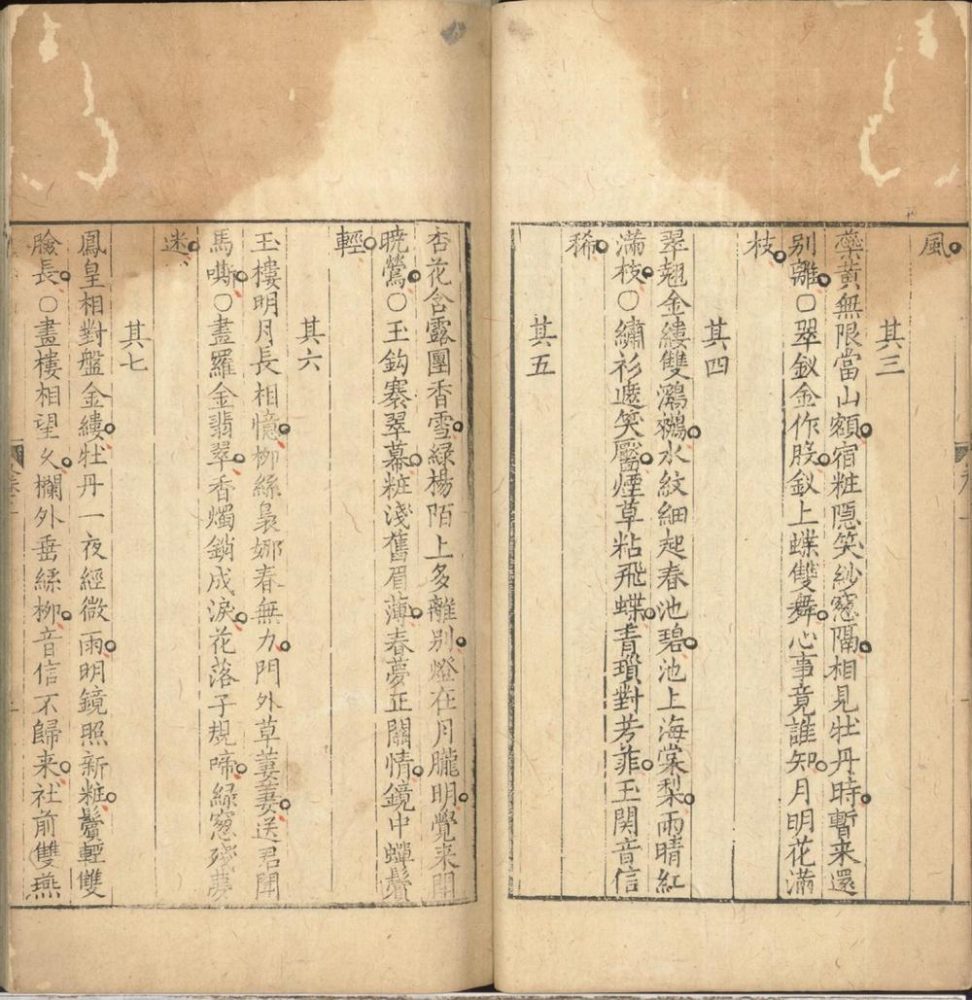 風
其三
蘂黃無限當山額宿粧隱笑紗窓隔相見牡丹時暫来還
别離○翠釵金作股釵上蝶雙舞心事竟誰知月明花滿
枝
其四
翠翹金縷雙鸂鶒水紋細起春池碧池上海棠梨雨晴紅
滿枝○繡衫遮笑靨煙草粘飛蝶青瑣對芳菲玉関音信
稀
其五
杏花含露團香雪綠楊陌上多離别燈在月朧明覺来聞
曉鶯○玉鈎褰翠幕粧淺舊眉薄春夢正關情鏡中蟬鬢
輕
其六
玉樓明月長相憶柳絲裊娜春無力門外草萋萋送君聞
馬嘶○畫羅金翡翠香燭銷成淚花落子規啼綠窓殘夢
迷
其七
鳳皇相對盤金縷牡丹一夜經微雨明鏡照新粧鬢輕雙
臉長○畫樓相望久欄外垂絲柳音信不歸来社前雙燕